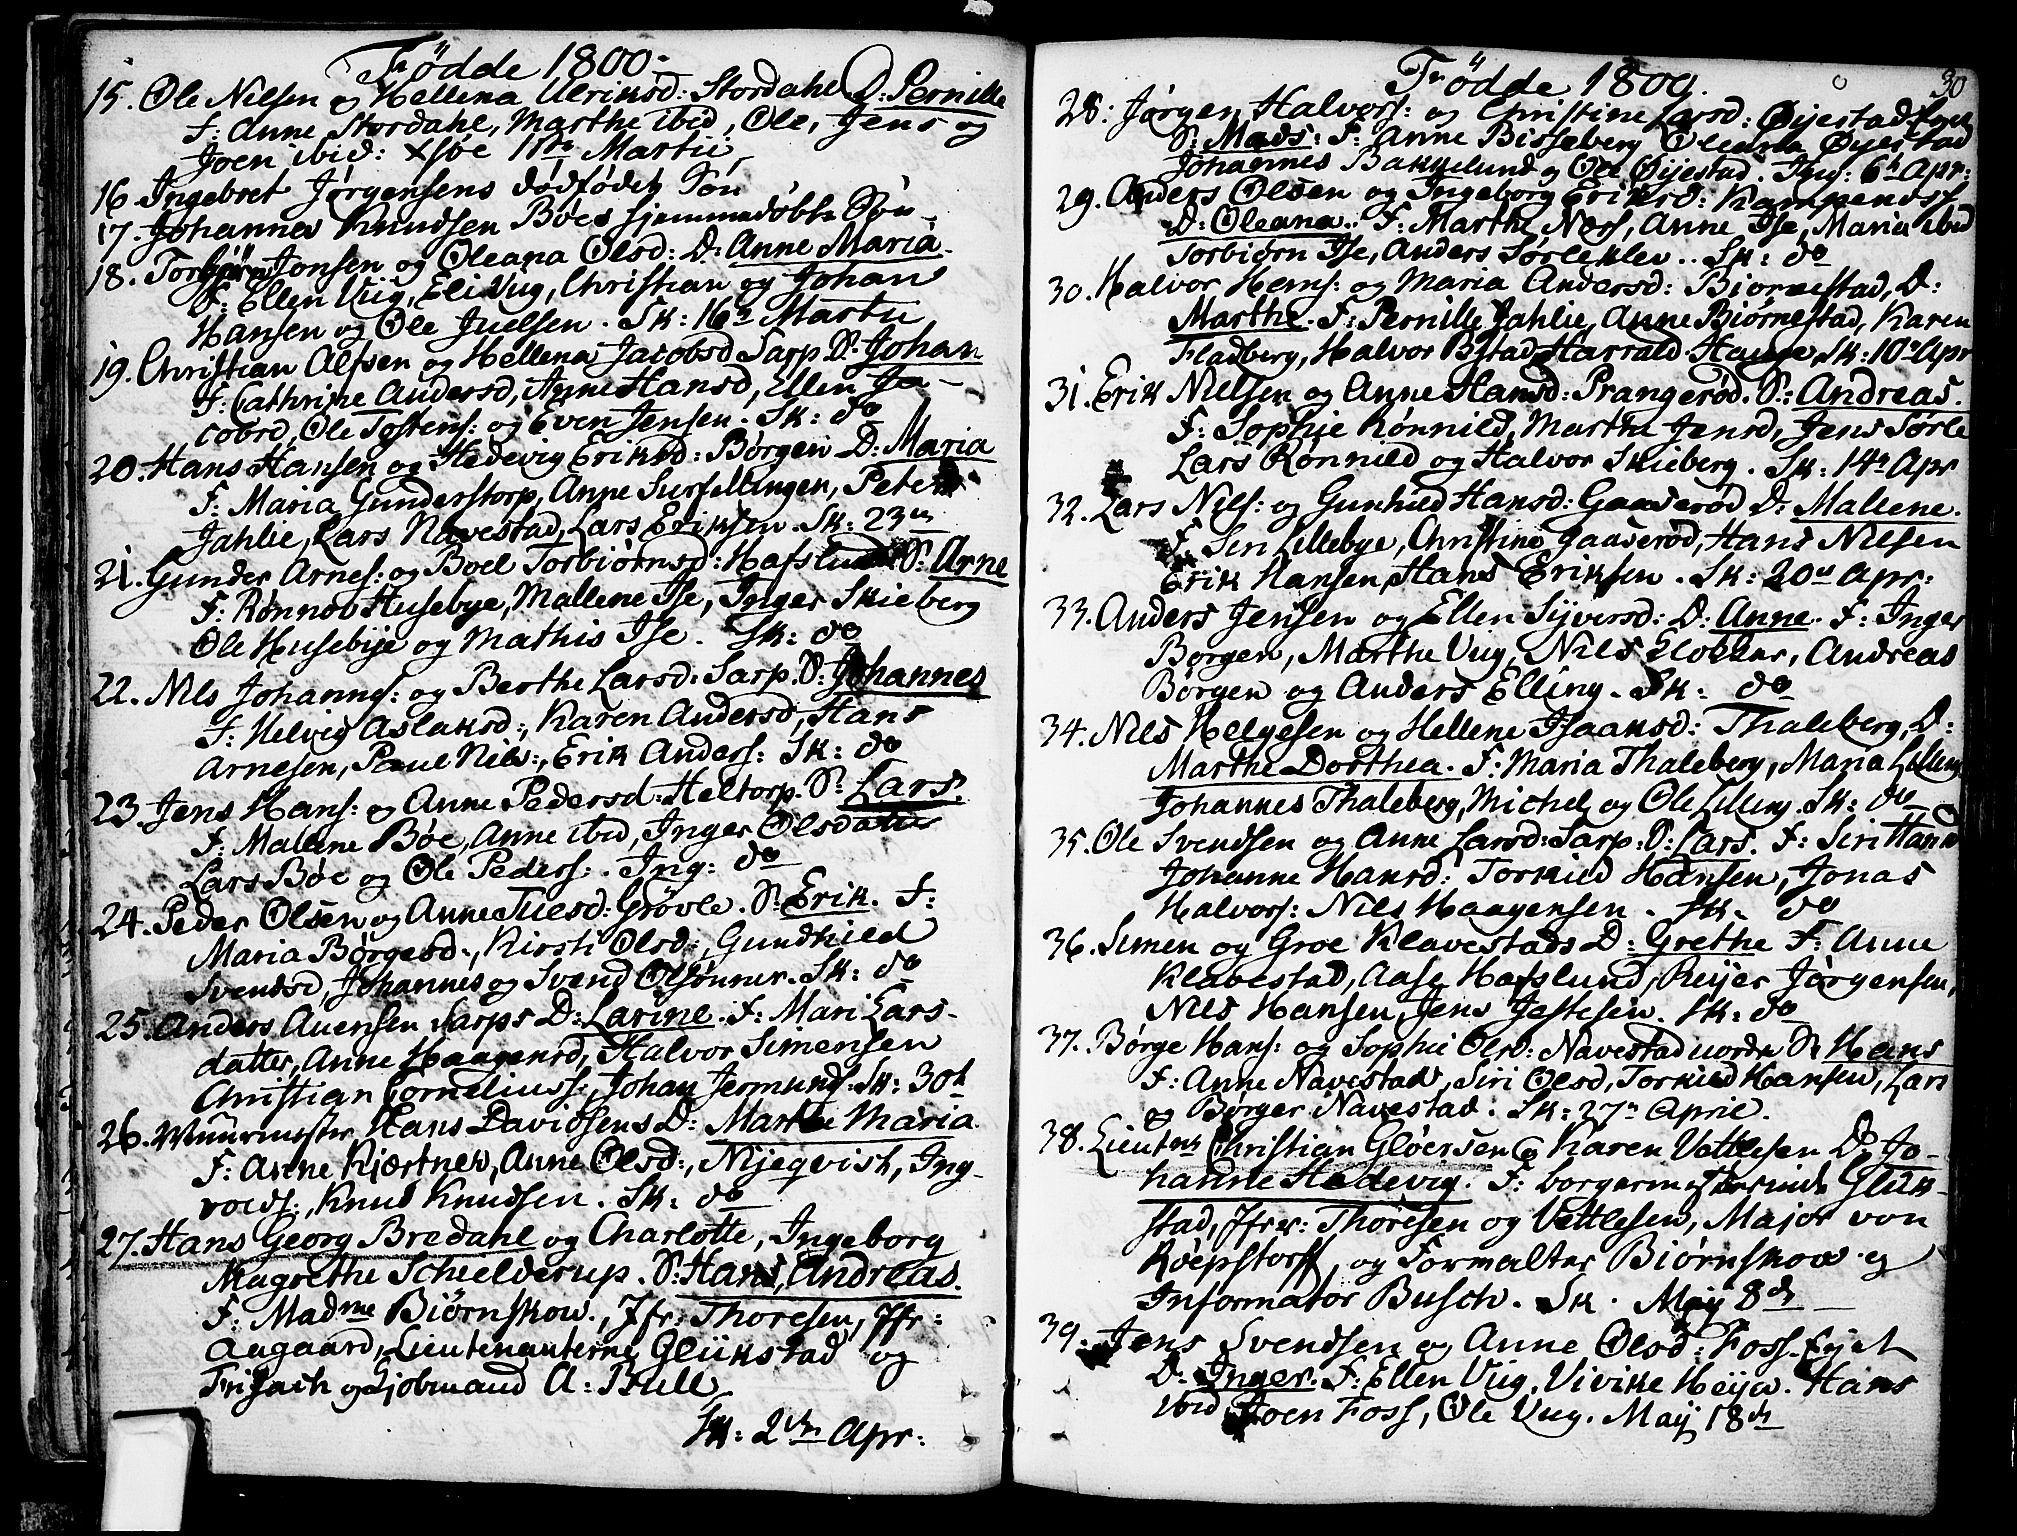 Fødde 1800.
15. Ole Nilsen og Hellena Ulriksd: Stordahl D: Pernille
F: Anne Stordahl, Marthe ibid, Ole, Jens og
Joen ibid: 11te Martii
16 Ingebret Jørgensens dødfødt Søn
17. Johannes Knudsen Bøes hjemmedøbte Søn
18. Torbiørn Jonsen og Oleana Olsd: D: Anne Maria.
F: Ellen Viig, Eli Viig, Christian og Johan
Hansen og Ole Juelsen. Sk: 16n Martii
19. Christian Alfsen og Hellena Jacobsd Sarp S: Johan
F: Cathrine Andersd, Anne Hansd, Ellen Ja-
cobsd, Ole Tostens: og Even Jensen. Sk: do
20. Hans Hansen og Hedevig Eriksd: Børgen D: Maria
F: Maria Gunderstorp, Anne Surfellingen, Peter
Jahlie, Lars Navestad, Lars Eriksen. Sk: 23n
21. Gunder Arnes: og Boel Torbiørnsd: Hafslund S: Arne
F: Rønnov Husebye, Mallene Ise, Inger Skieberg
Ole Husebye og Mathis Ise. Sk: do
22. Nils Johanns: og Berthe Larsd: Sarp. S: Johannes
F: Helvig Aslaksd:, Karen Andersd, Hans
Arnesen, Paul Nils:, Erik Anders: Sk: do
23. Jens Hans: og Anne Pedersd: Heltorp. S: Lars.
F: Mallene Bøe, Anne ibid, Inger Olsdatter
Lars Bøe og Ole Peders:. Ing: do
24. Peder Olsen og Anne Juelsd: Grøvle. S: Erik. F:
Maria Børgesd., Kirsti Olsd:, Gundhild
Svendsd, Johannes og Svend Olsønner. Sk: do
25. Anders Auensen Sarps D: Larine. F: Mari Lars-
datter, Anne Haagensd, Halvor Simensen
Christian Cornelius:, Johan Jermunds: Sk: 30t
26. Muurmester Hans Davidsens D: Marthe Maria.
F: Anne Kjærtnes, Anne Olsd:, Nyeqvist, Ing-
volds:, Knud Knudsen. Sk: do
27. Hans Georg Bredahl og Charlotte, Ingeborg
Magrethe Schielderup. S: Hans, Andreas.
F: Madme Biørnskow., Jfr: Thoresen, Jfr:
Aagaard, Lieutenanterne Glükstad og
Frisach og Sjobmand A: Bull
Sk: 2den Apr:
30
Fødde 1800.
28. Jørgen Halvors: og Christine Larsd: Øijestad
S: Mads: F: Anne Bisseberg Oleana Øyestad
Johannes Bakkelund og Ole Øijestad. Ing: 6t Apr:
29. Anders Olsen og Ingeborg Eriksd: Kampenæs
D: Oleana. F: Marthe Næss, Anne Ise, Maria ibid
Torbiørn Ise, Anders Sørleklev.. Sk: do
30. Halvor Hems: og Maria Andersd: Biørnestad, D:
Marthe. F: Pernille Jahlie, Anne Biørnestad, Karen
Fladberg, Halvor Bystad Harrald Hauge, Sk: 10n Apr
31. Erik Nielsen og Anne Hansd: Prangerød. S: Andreas.
F: Sophie Rønnild, Marthe Jensd, Jens Sørle
Lars Rønnild og Halvor Skieberg. Sk: 14n Apr
32. Lars Nils: og Gunhild Hansd: Gaaserød D: Mallene.
F: Siri Lillebye, Christine Gaaserød, Hans Nilsen
Erik Hansen, Hans Eriksen. Sk: 20n Apr:
33. Anders Jensen og Ellen Syversd: D: Anne. F: Inger
Borgen, Marthe Viig, Nils Klokker, Andreas
Børgen og Anders Elling. Sk: do
34. Nils Helgesen og Hellene Isaaksd: Thaleberg, D:
Marthe Dorthea. F: Maria Thaleberg, Maria Lilleng
Johannes Thaleberg, Michel og Ole Lilleng. Sk: do
35. Ole Svendsen og Anne Larsd: Sarp. S: Lars. F: Siri Hansd
Johanne Hansd: Torkild Hansen, Jonas
Halvors: Nils Haagensen. Sk. do
36. Simen og Groe Klavestads D: Grethe F: Anne
Klavestad, Aase Hafslund, Reijer Jørgensen,
Nils Hansen, Jens Jestesen. Sk: do
37. Børge Hans: og Sophie Olsd: Navestad nordre S: Hans
F: Anne Navestad, Siri Olsd, Torkild Hansen, Lars
og Børger Navestad. Sk: 27n April.
38. Lieutnt Christian Gløersen og Karen Vettlesen D: Jo-
hanne Hedevig. F: borgermesterinde Glük-
stad, Jfrer: Thoresen og Vettlesen, Major von
Røepstorff, og Formalter Biørnskow og
Informator Busch. Sk. Maij 8de
39. Jens Svendsen og Anne Olsd: Foss Eyet
D: Inger. F: Ellen Viig, Vivike Heye. Hans
ibid Joen Foss, Ole Viig. Maij 18de